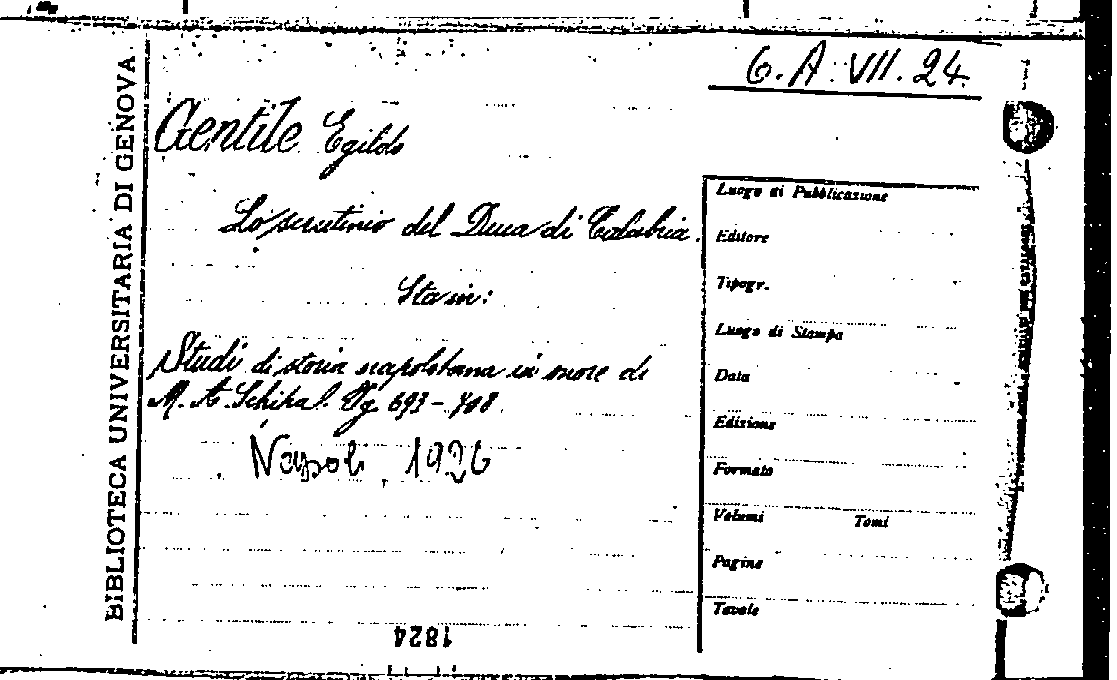 6.A.VII.24
BIBLIOTECA UNIVERSITARIA DI GENOVA
Gentile Egildo
Lo scrutinio del Duca di Calabria.
Sta in:
Studi di storia napoletana in onore di
M. A. Schipa. Pg. 693-708
Napoli, 1926
Luogo di Pubblicazione
Editore
Tipogr.
Luogo di Stampa
Data
Edizione
Formato
Volumi Tomi
Pagine
Tavole
1824